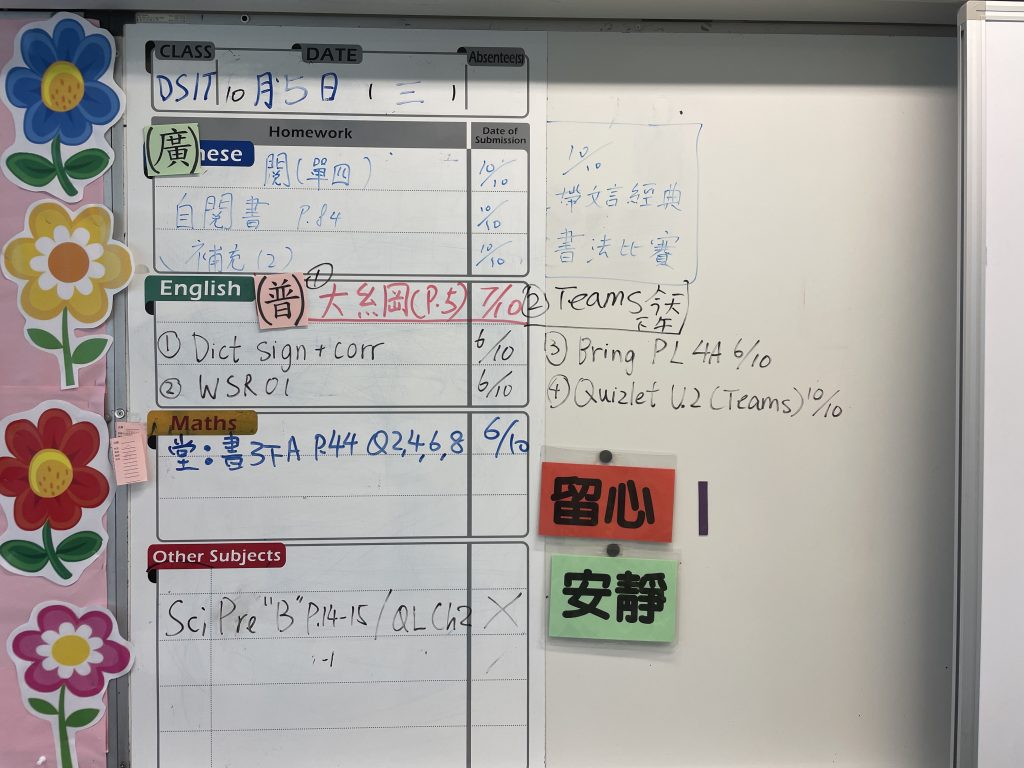 CLASS DATE Absentee(s)
DSIT 10 月 5 日 ( 三 )
Homework Date of Submission
(廣) nese
閱(單四) 10/10
自閱書 P.84 10/10
補充(2) 10/10
10/10
帶文言經典
書法比賽
English (普) ① 大綱(P.5) 7/10 ② Teams 今天下午
① Dict sign + corr 6/10 ③ Bring PL 4A 6/10
② WSR 01 6/10 ④ Quizlet U.2 (Teams) 10/10
Maths
堂:書3下A P.44 Q2,4,6,8 6/10
留心
安靜
Other Subjects
Sci Pre "B" P.14-15 / QL Ch2 X
-1